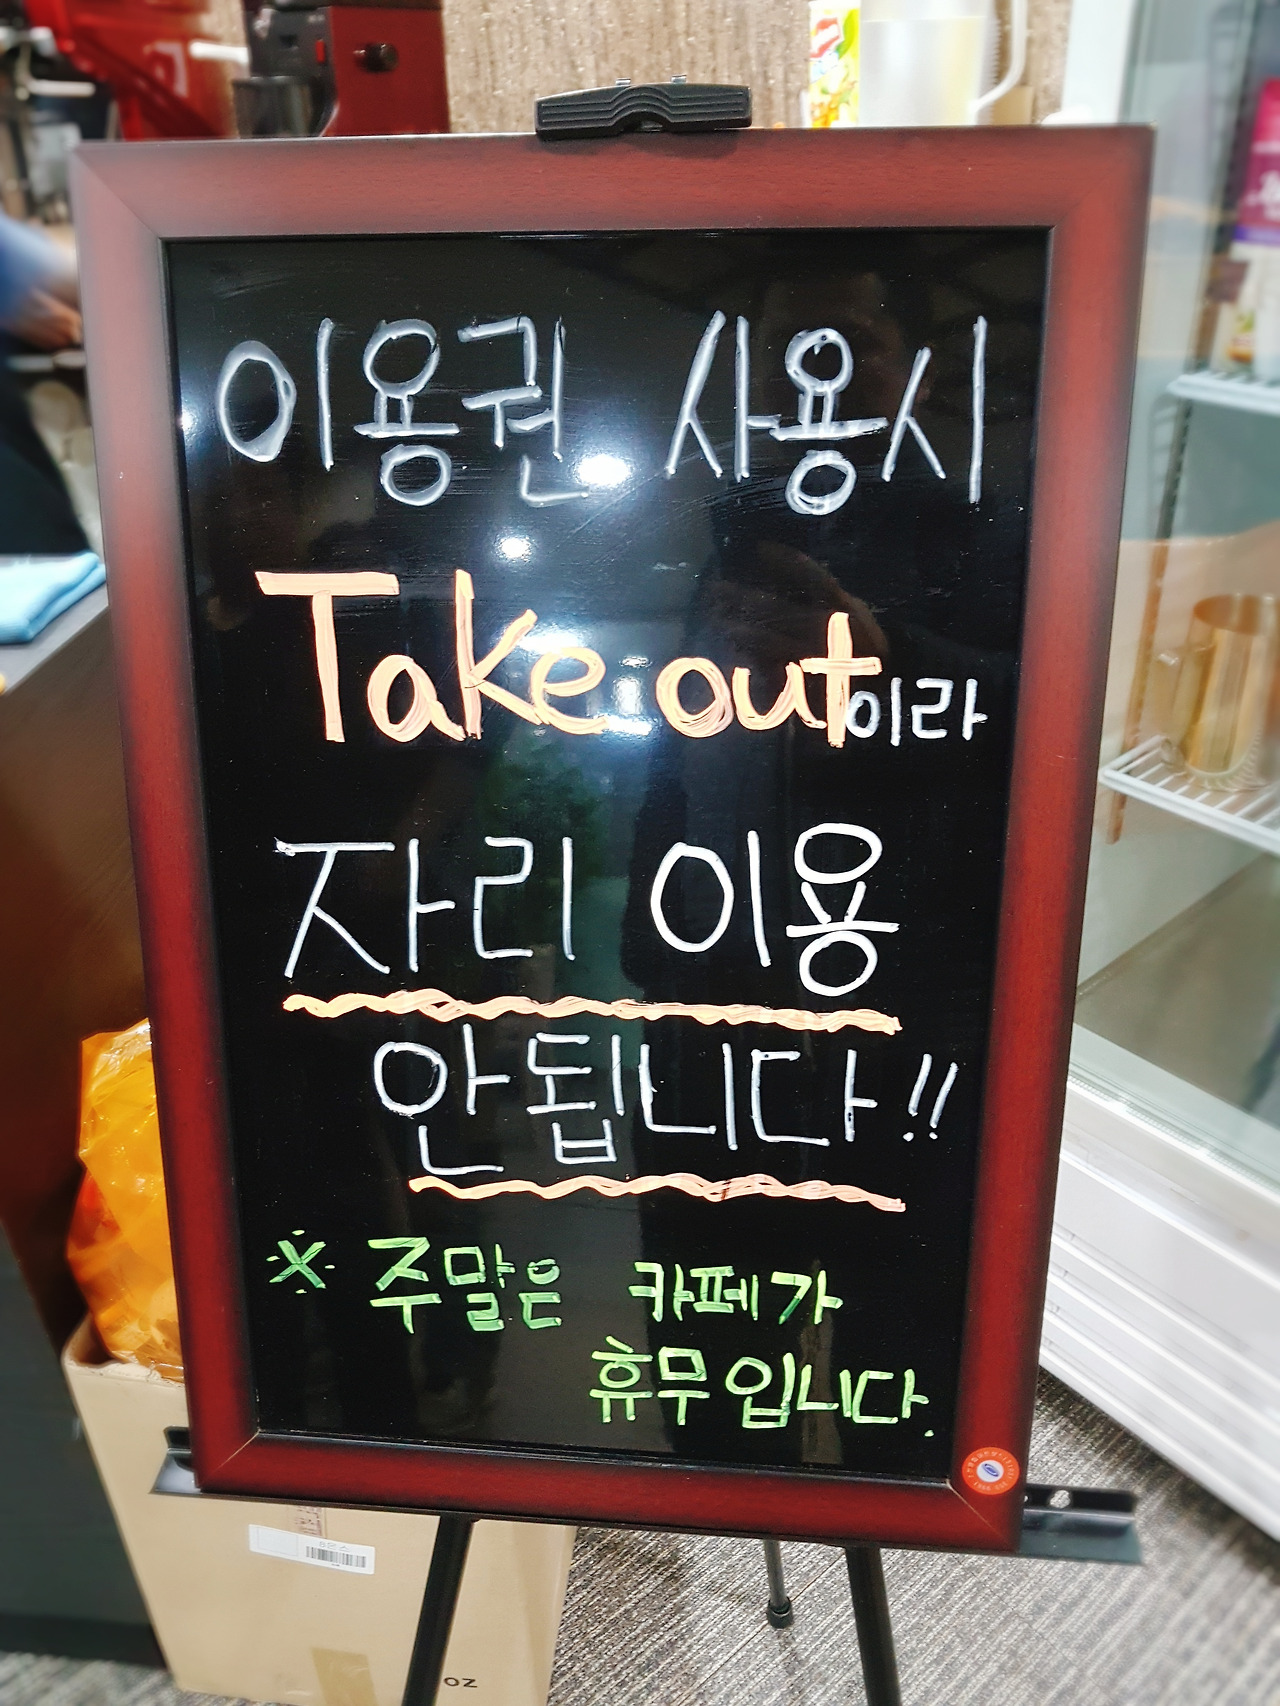 이용권 사용시
Take out이라
자리 이용
안됩니다!!
※ 주말은 카페가
휴무입니다.
oz